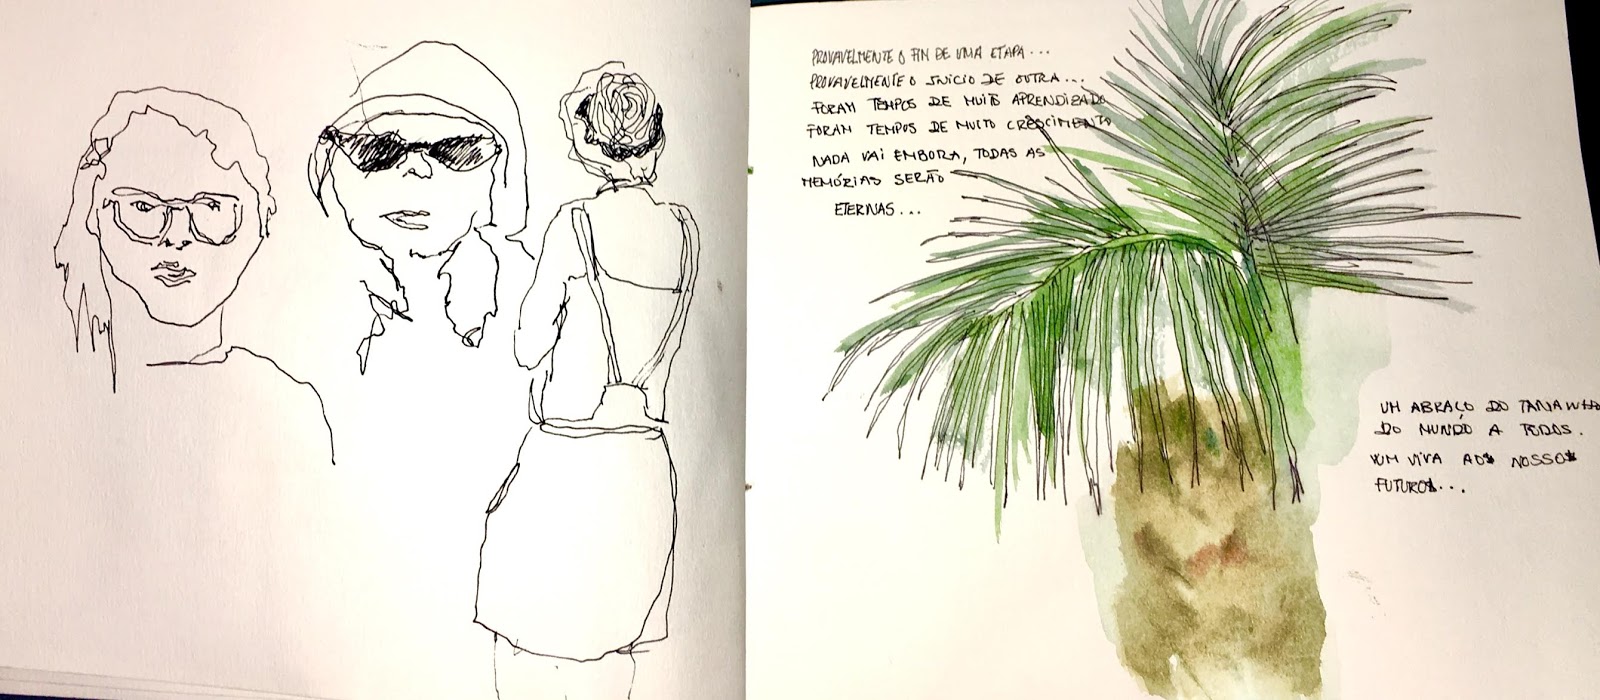 PROVAVELMENTE O FIN DE UMA ETAPA...
PROVAVELMENTE O INICIO DE OUTRA...
FORAM TEMPOS DE MUITO APRENDIZADO
FORAM TEMPOS DE MUITO CRESCIMENTO
NADA VAI EMBORA, TODAS AS
MEMÓRIAS SERÃO
ETERNAS...
UM ABRAÇO DO
DO MUNDO A TODOS.
UM VIVA AOS NOSSOS
FUTUROS...